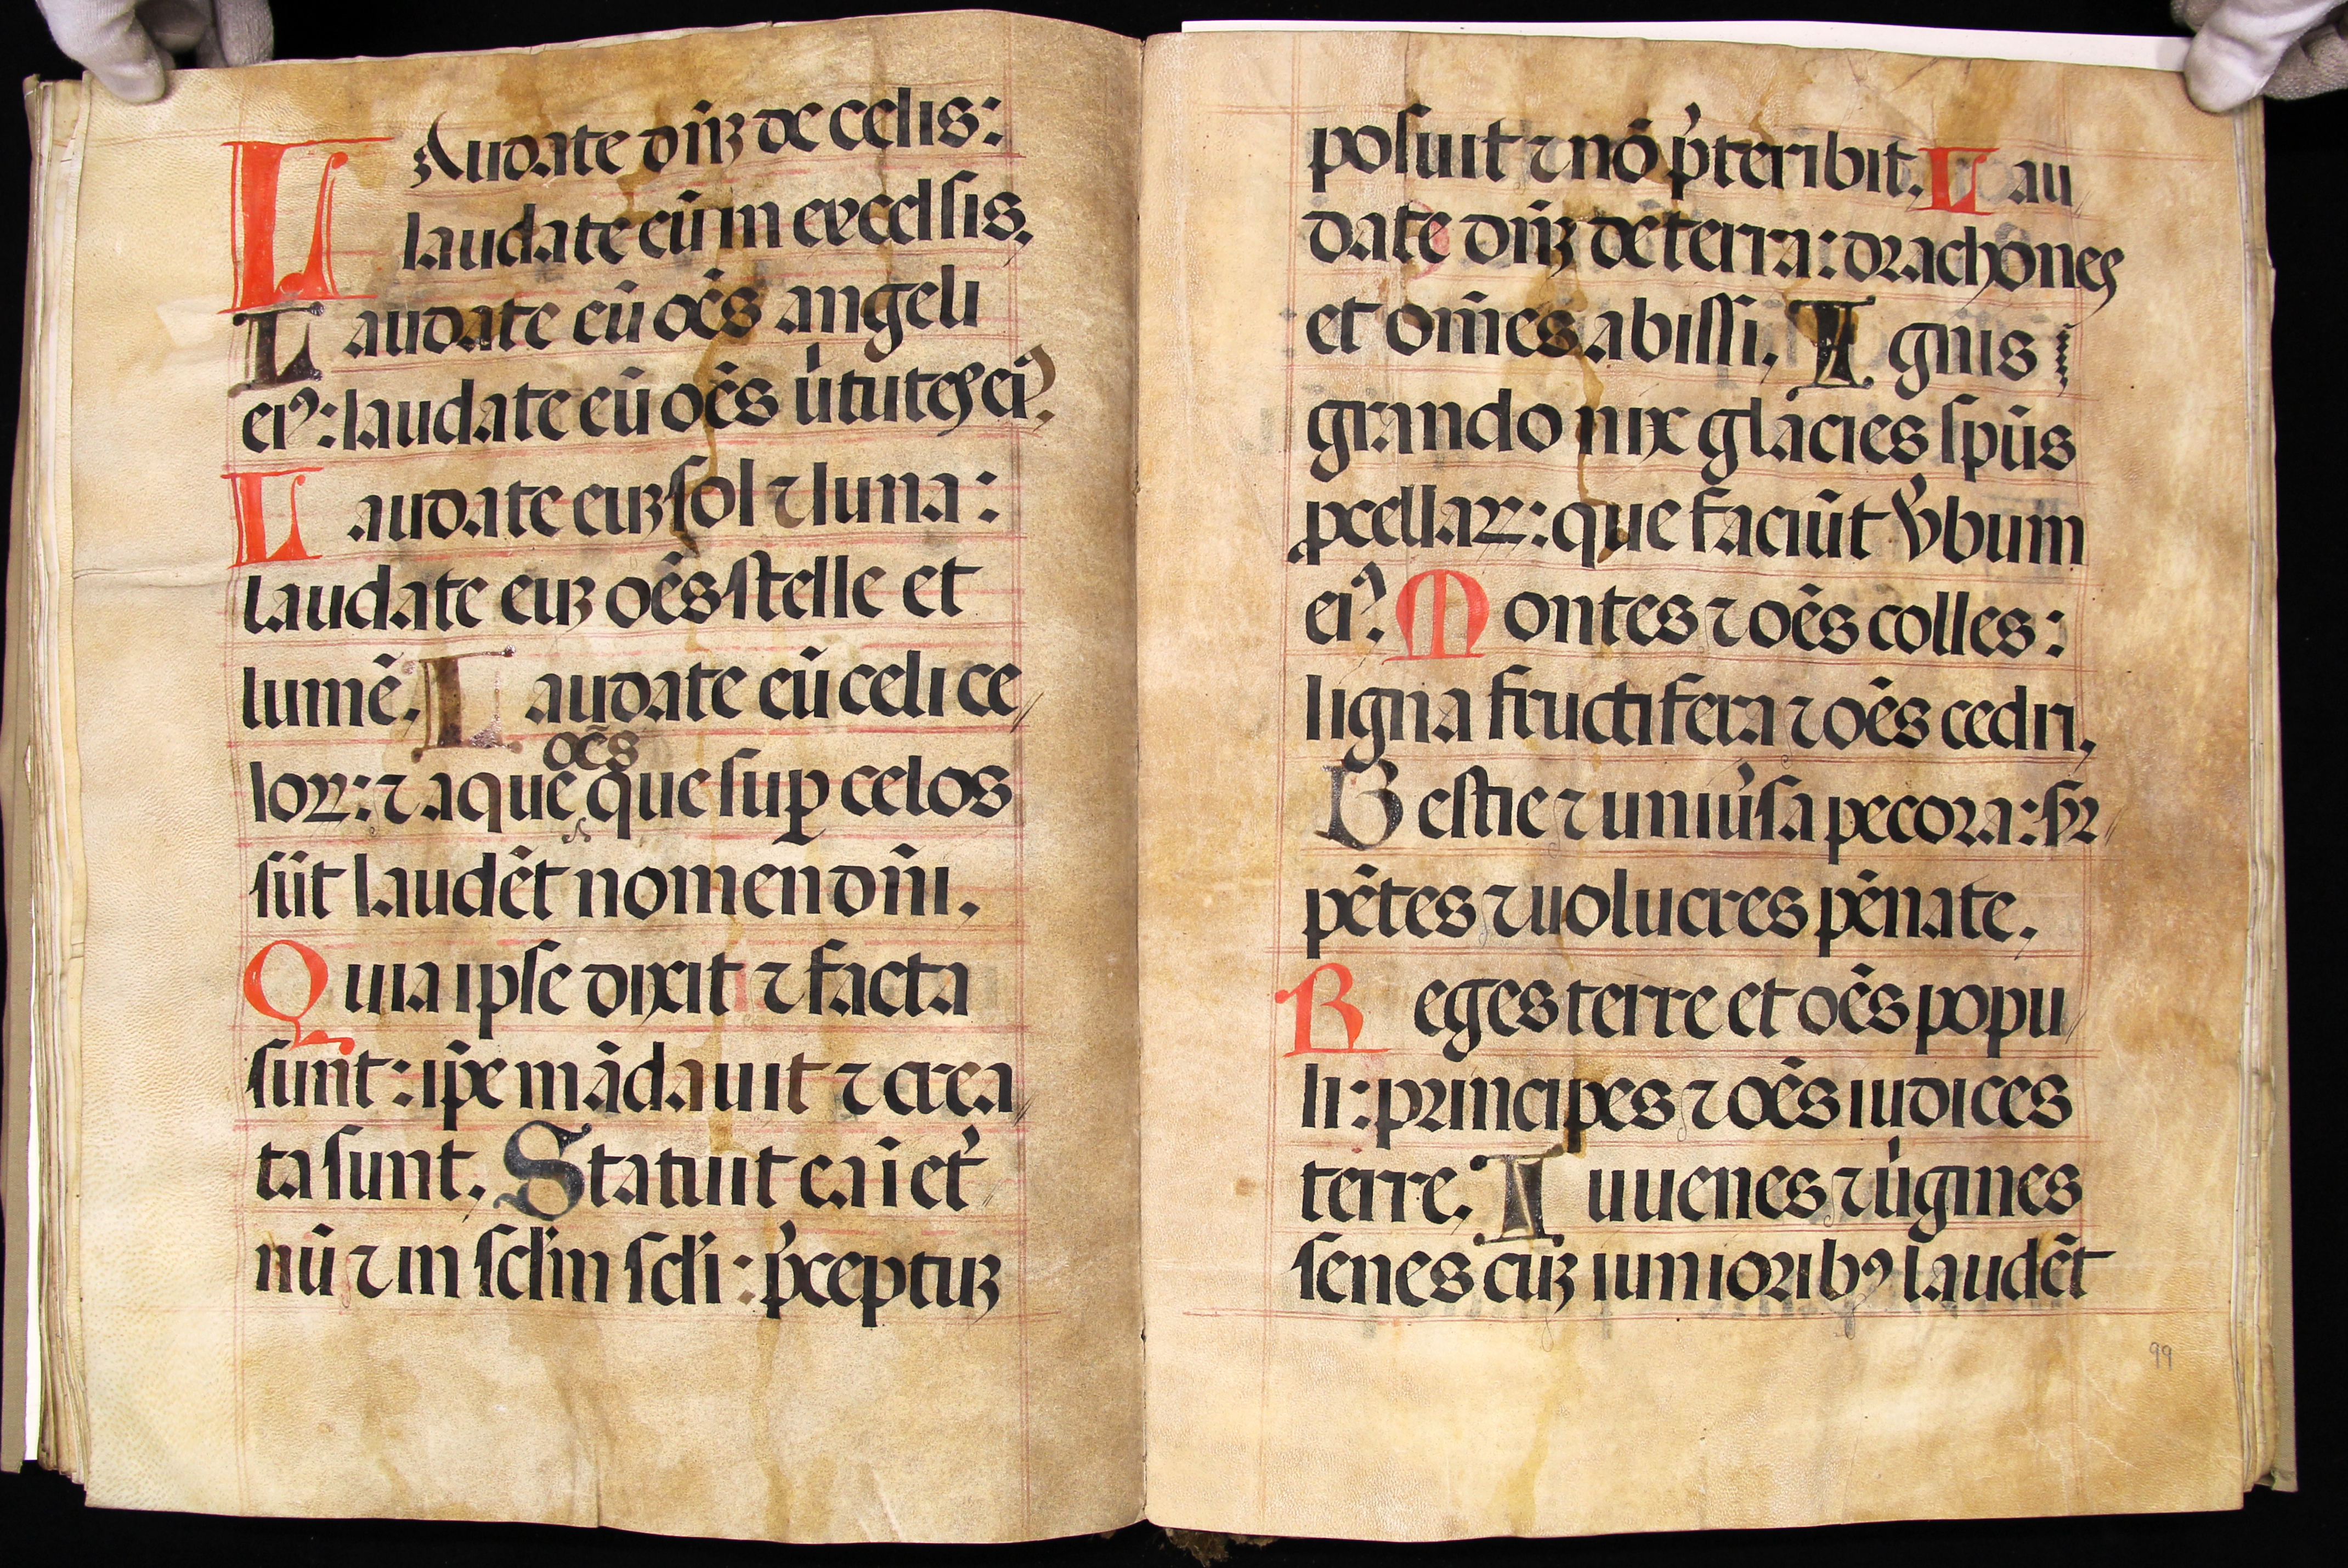 LAudate dn̄ꝫ de celis:
laudate eū in excelsis.
Laudate eū oēs angeli
eiꝰ: laudate eū oēs u̇tutes eiꝰ.
Laudate euꝫ sol ⁊ luna:
laudate euꝫ oēs stelle et
lumē. Laudate eū celi ce//
oēs
loꝝ: ⁊ aque que suꝑ celos
sūt laudēt nomen dn̄i.
Quia ipse dixit ⁊ facta
sunt: ip̄e mādauit ⁊ crea//
ta sunt. Statuit ea ī et̉//
nū ⁊ in scl̄m scl̄i: p̉ceptuꝫ
posuit ⁊ nō p̉teribit. Lau//
date dn̄ꝫ de terra: drachones
et om̄es abissi. Ignis
grando nix glacies spūs
ꝓcellaꝝ: que faciūt v̉bum
eiꝰ. Montes ⁊ oēs colles:
ligna fructifera ⁊ oēs cedri.
Bestie ⁊ uniủsa pecora: sr̉//
pētes ⁊ uolucres pēnate.
Reges terre et oēs popu//
li: principes ⁊ oēs iudices
terre. Iuuenes ⁊ u̇gines
senes cuꝫ iunioribꝰ laudēt
99